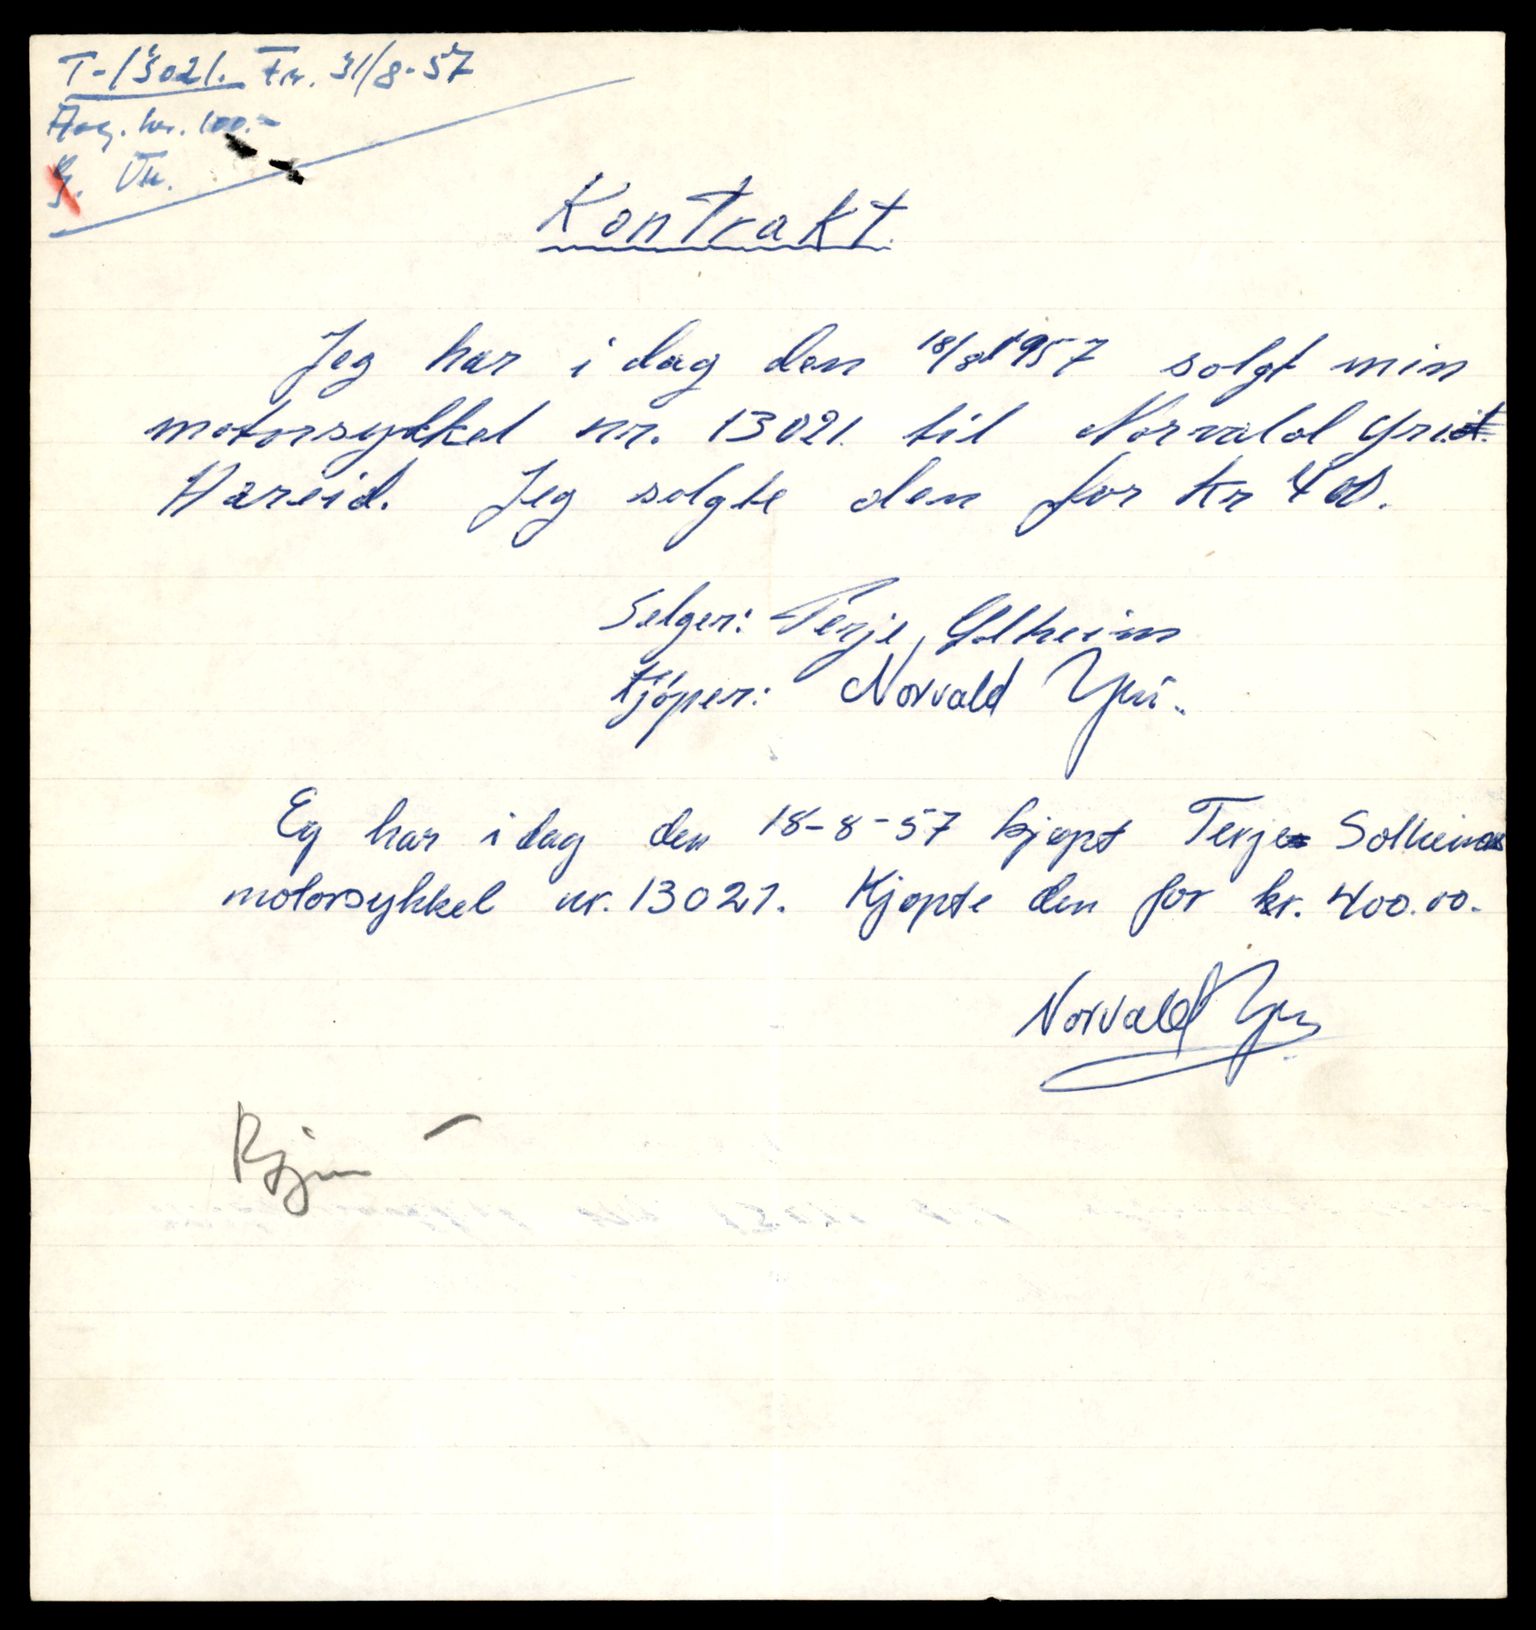 T-13021. Fr. 31/8-57
kr. 100.-
Kontrakt.
Jeg har i dag den 18/8 1957 solgt min
motorsykkel nr. 13021. til Norvald Yri
Hareid. Jeg solgte den for kr 400.
Selger: Terje Solheim
Kjöper: Norvald Yri.
Eg har i dag den 18-8-57 kjøpt Terje Solheims
motorsykkel nr. 13021. Kjøpte den for kr. 400.00.
Norvald Yri